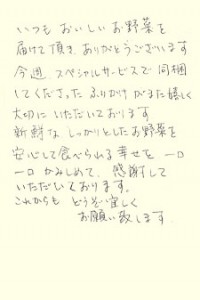 いつも おいしい お野菜を
届けて頂き ありがとうございます
今週 スペシャルサービスで 同梱
してくださった ふりかけ がまた嬉しく
大切に いただいております
新鮮な しっかりとしたお野菜を
安心して食べられる幸せを 一口
一口 かみしめて、感謝して
いただいております。
これからも どうぞ宜しく
お願い致します